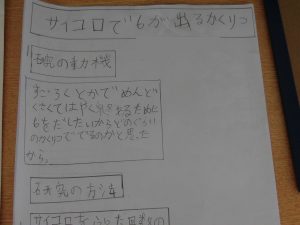 サイコロで6が出るかくりつ
研究の動機
すごろくとかでめんど
くさくてはやく終わるために
6をだしたいからどのぐらい
のかくりつででるのかと思った
から。
研究の方法
サイコロをふった回数の